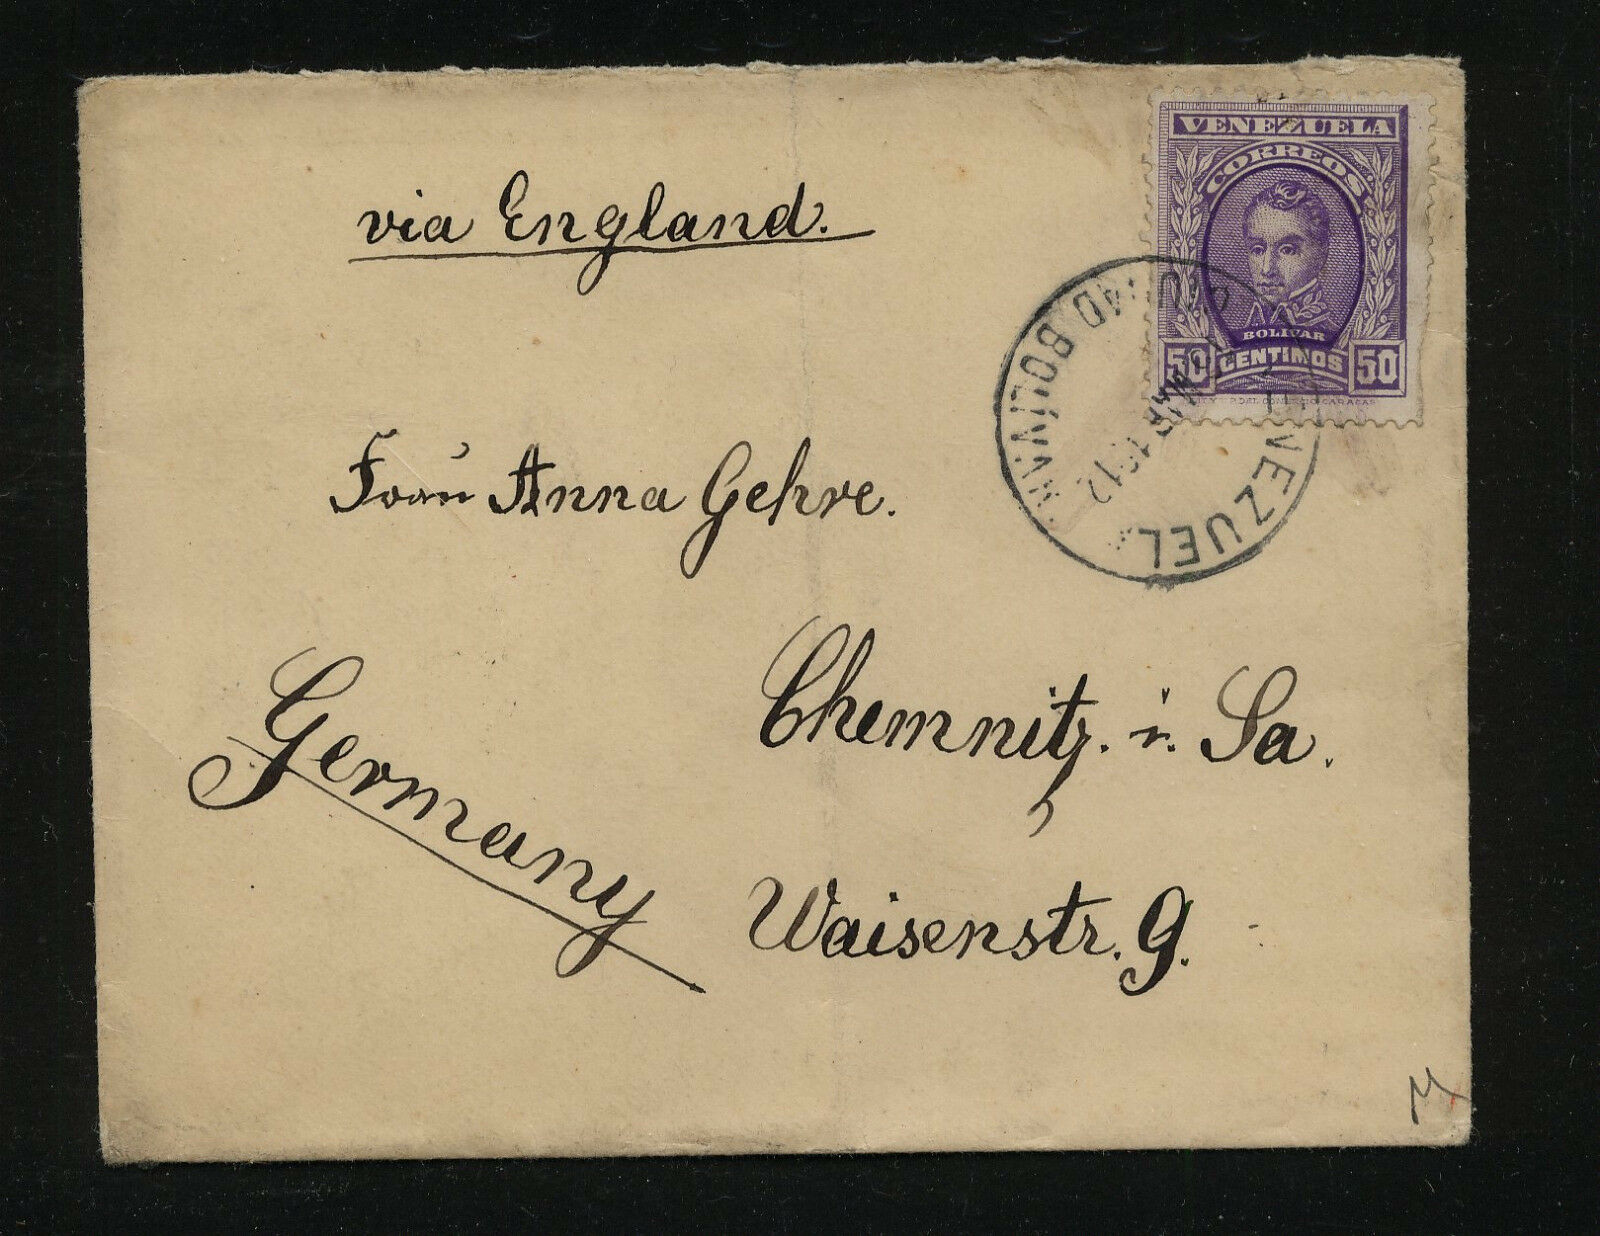 via England.
VENEZUELA
CORREOS
BOLIVAR
50 CENTIMOS 50
CIUDAD BOLÍVAR
MAR 1912
VENEZUELA
Frau Anna Gehre.
Chemnitz. i. Sa.
Germany
Waisenstr. 9.